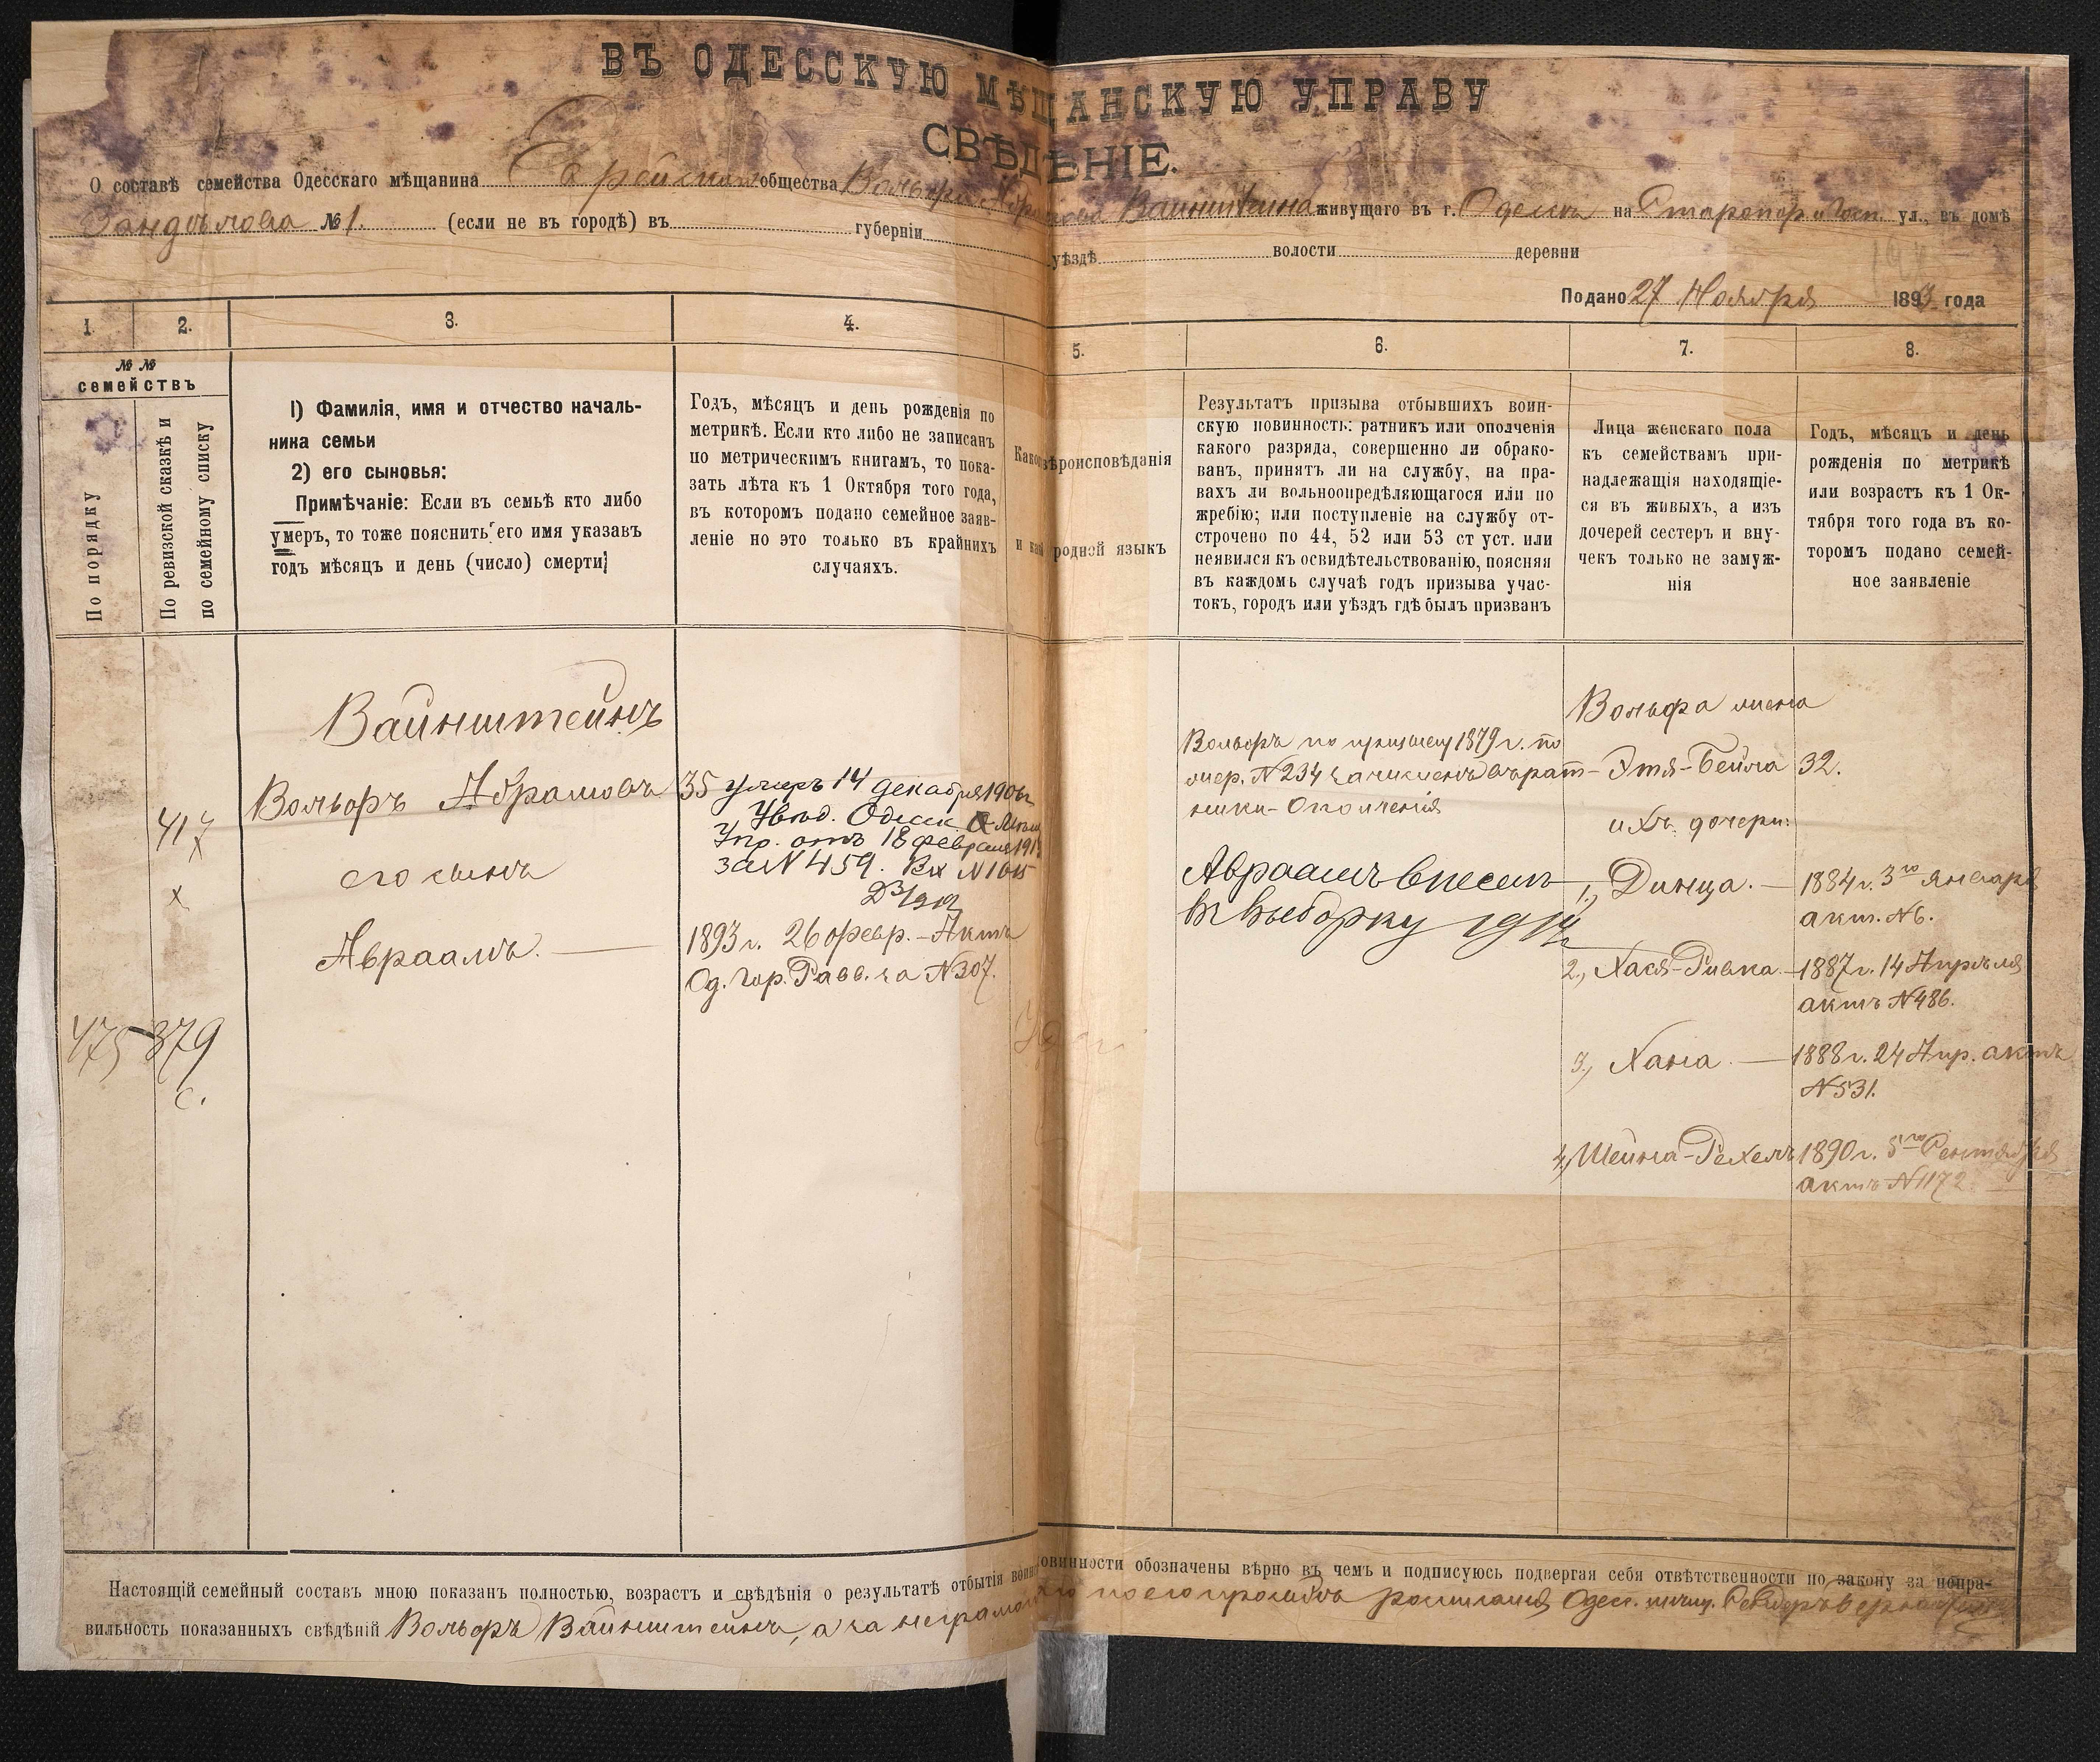 ВЪ ОДЕССКУЮ МѢЩАНСКУЮ УПРАВУ
СВѢДѢНІЕ.
О составѣ семейства Одесскаго мѣщанина Еврейскаго общества Вольфа Абрамова Ваинштеина живущаго въ г. Одессѣ на Старопорт. ул., въ домѣ
№ 1. (если не въ городѣ) въ губерніи уѣздѣ волости деревни
Подано 27 Ноября 1893 года
1. 2. 3. 4. 5. 6. 7. 8.
№ №
семействъ
По порядку
По ревизской сказкѣ и
по семейному списку
1) Фамилія, имя и отчество началь-
ника семьи
2) его сыновья:
Примѣчаніе: Если въ семьѣ кто либо
умеръ, то тоже пояснить его имя указавъ
годъ мѣсяцъ и день (число) смерти
Годъ, мѣсяцъ и день рожденія по
метрикѣ. Если кто либо не записанъ
по метрическимъ книгамъ, то пока-
зать лѣта къ 1 Октября того года,
въ которомъ подано семейное заяв-
леніе но это только въ крайнихъ
случаяхъ.
Какого вѣроисповѣданія
и какой родной языкъ
Результатъ призыва отбывшихъ воин-
скую повинность: ратникъ или ополченія
какого разряда, совершенно ли обрако-
ванъ, принятъ ли на службу, на пра-
вахъ ли вольноопредѣляющагося или по
жребію; или поступленіе на службу от-
строчено по 44, 52 или 53 ст уст. или
неявился къ освидѣтельствованію, поясняя
въ каждомъ случаѣ годъ призыва учас-
токъ, городъ или уѣздъ гдѣ былъ призванъ
Лица женскаго пола
къ семействамъ при-
надлежащія находящіе-
ся въ живыхъ, а изъ
дочерей сестеръ и вну-
чекъ только не замуж-
нія
Годъ, мѣсяцъ и день
рожденія по метрикѣ
или возрастъ къ 1 Ок-
тября того года въ ко-
торомъ подано семей-
ное заявленіе
417
х
х
475 379
с.
Вайнштейнъ
Вольфъ Абрамовъ
его сынъ
Авраамъ. —
35 умеръ 14 декабря 1906 г
Увѣд. Одесск. Мѣщ
Упр. отъ 18 февраля 191
за N 459. Вх N 1015
1893 г. 26 февр. – Актъ
Од. Гор. Равв. за N 307.
Вольфъ по призыву 1879 г. по
жер. N 234 зачисленъ въ рат-
ники-Ополченія
Авраамъ внесенъ
въ выборку 1914 г
Вольфа жена
Этя-Бейла 32.
ихъ дочери:
1., Динца. — 1884 г. 3го Января
акт. N 6.
2., Хася-Ривка. – 1887 г. 14 Апрѣля
актъ N 486.
3., Хана. — 1888 г. 24 Апр. актъ
N 531.
4., Шейна-Рехель 1890 г. 5го Сентября
актъ N 1172
Настоящій семейный составъ мною показанъ полностью, возрастъ и свѣдѣнія о результатѣ отбытія воинской повинности обозначены вѣрно въ чемъ и подписуюсь подвергая себя отвѣтственности по закону за непра-
вильность показанныхъ свѣдѣній Вольфъ Вайнштейнъ, а за неграмотн его по его просьбѣ росписался Одес. мѣщ.